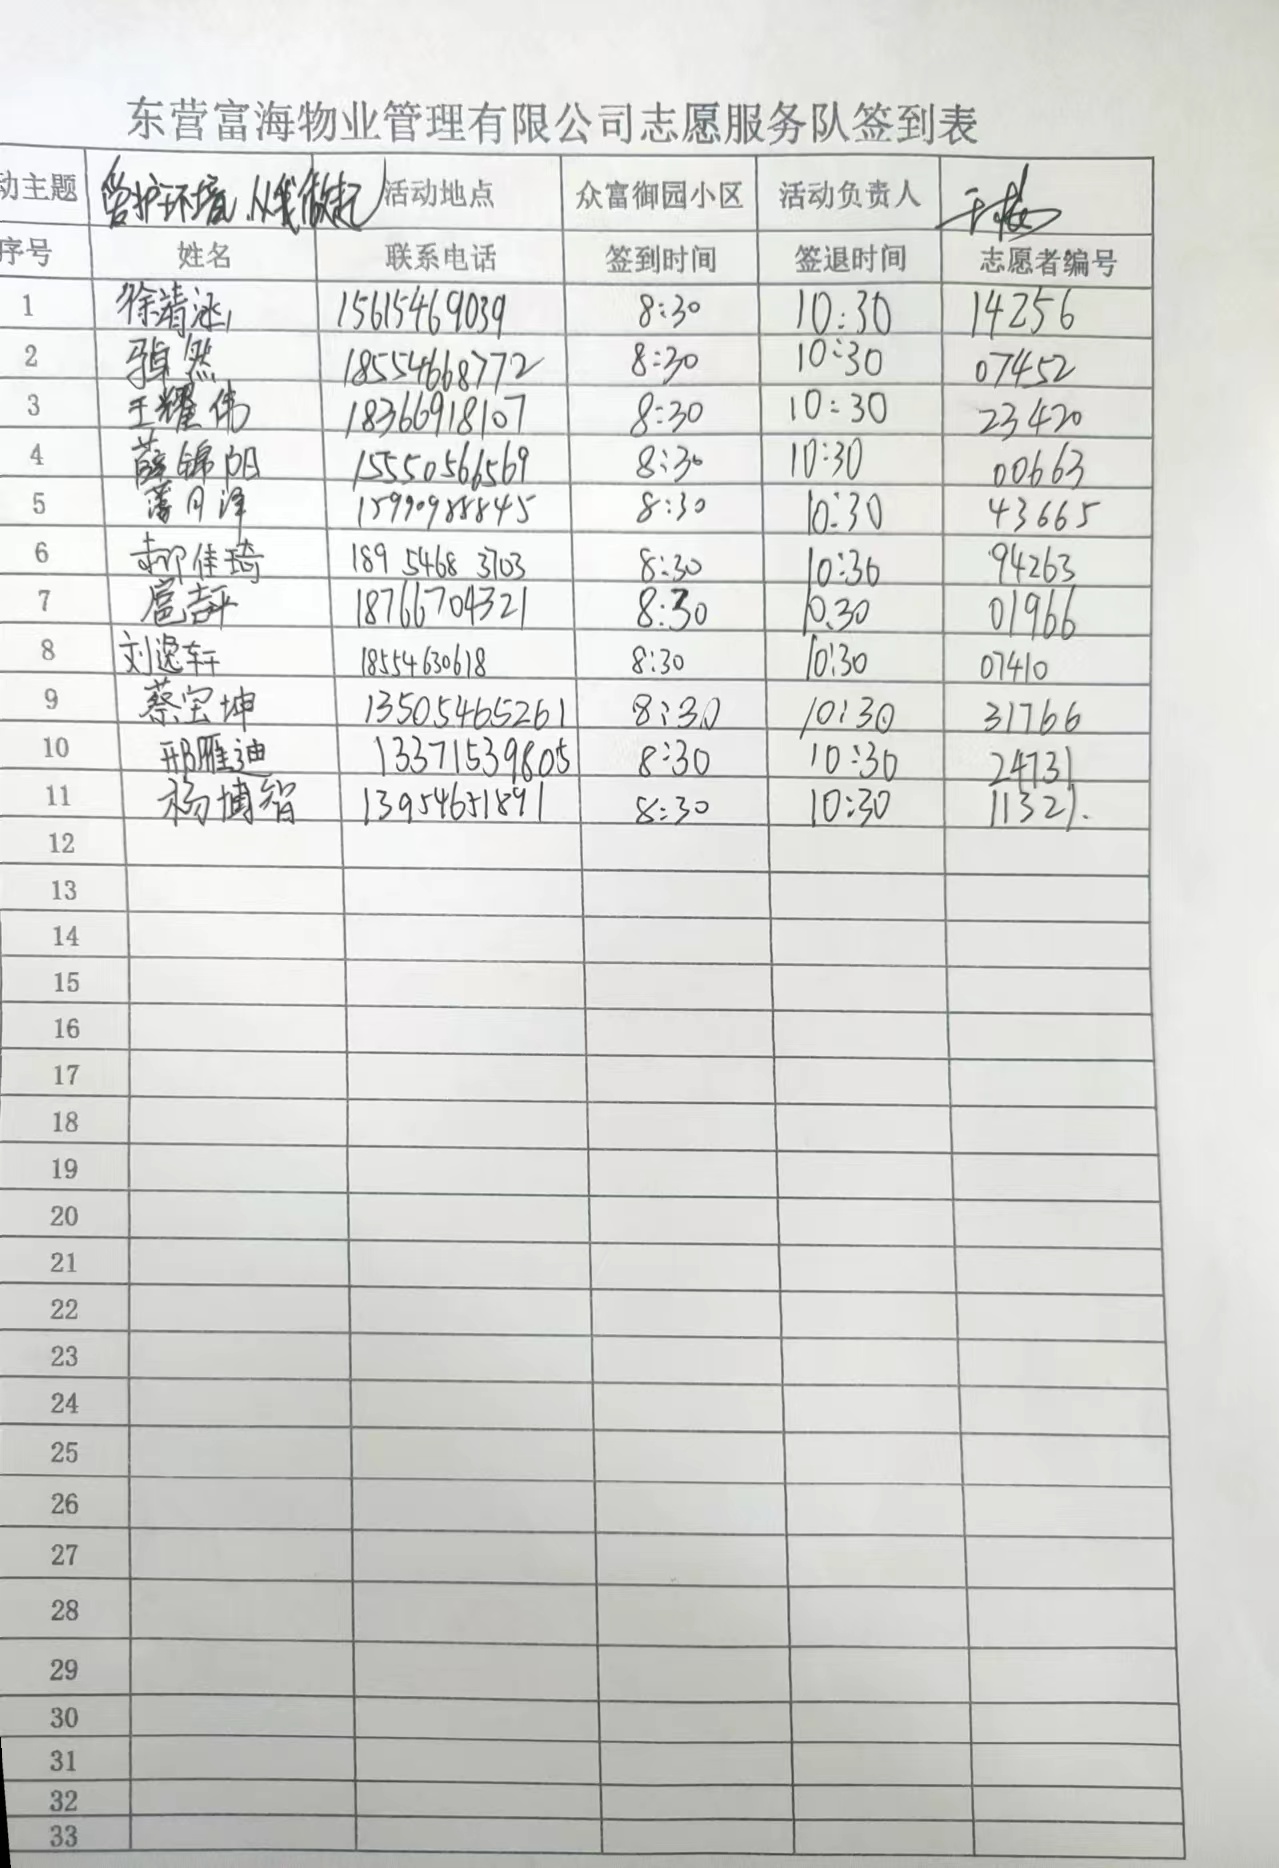 东营富海物业管理有限公司志愿服务队签到表
动主题 爱护环境从我做起 活动地点 众富御园小区 活动负责人
序号 姓名 联系电话 签到时间 签退时间 志愿者编号
1 徐靖 15615469039 8:30 10:30 14256
2 然 18554668772 8:30 10:30 07452
3 王耀伟 18366918107 8:30 10:30 23420
4 薛锦阳 15550566569 8:30 10:30 00663
5 8:30 10:30 43665
6 郝佳琦 189 5468 3703 8:30 10:30 94263
7 18766704321 8:30 10:30 01966
8 刘逸轩 18554630618 8:30 10:30 07410
9 蔡宝坤 13505465261 8:30 10:30 31766
10 邢雁迪 13371539805 8:30 10:30 24731
11 杨博智 13954651891 8:30 10:30 11321.
12
13
14
15
16
17
18
19
20
21
22
23
24
25
26
27
28
29
30
31
32
33